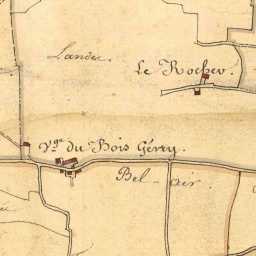 Landes.
Le Rocher.
Vge du Bois Gérry.
Bel-air.